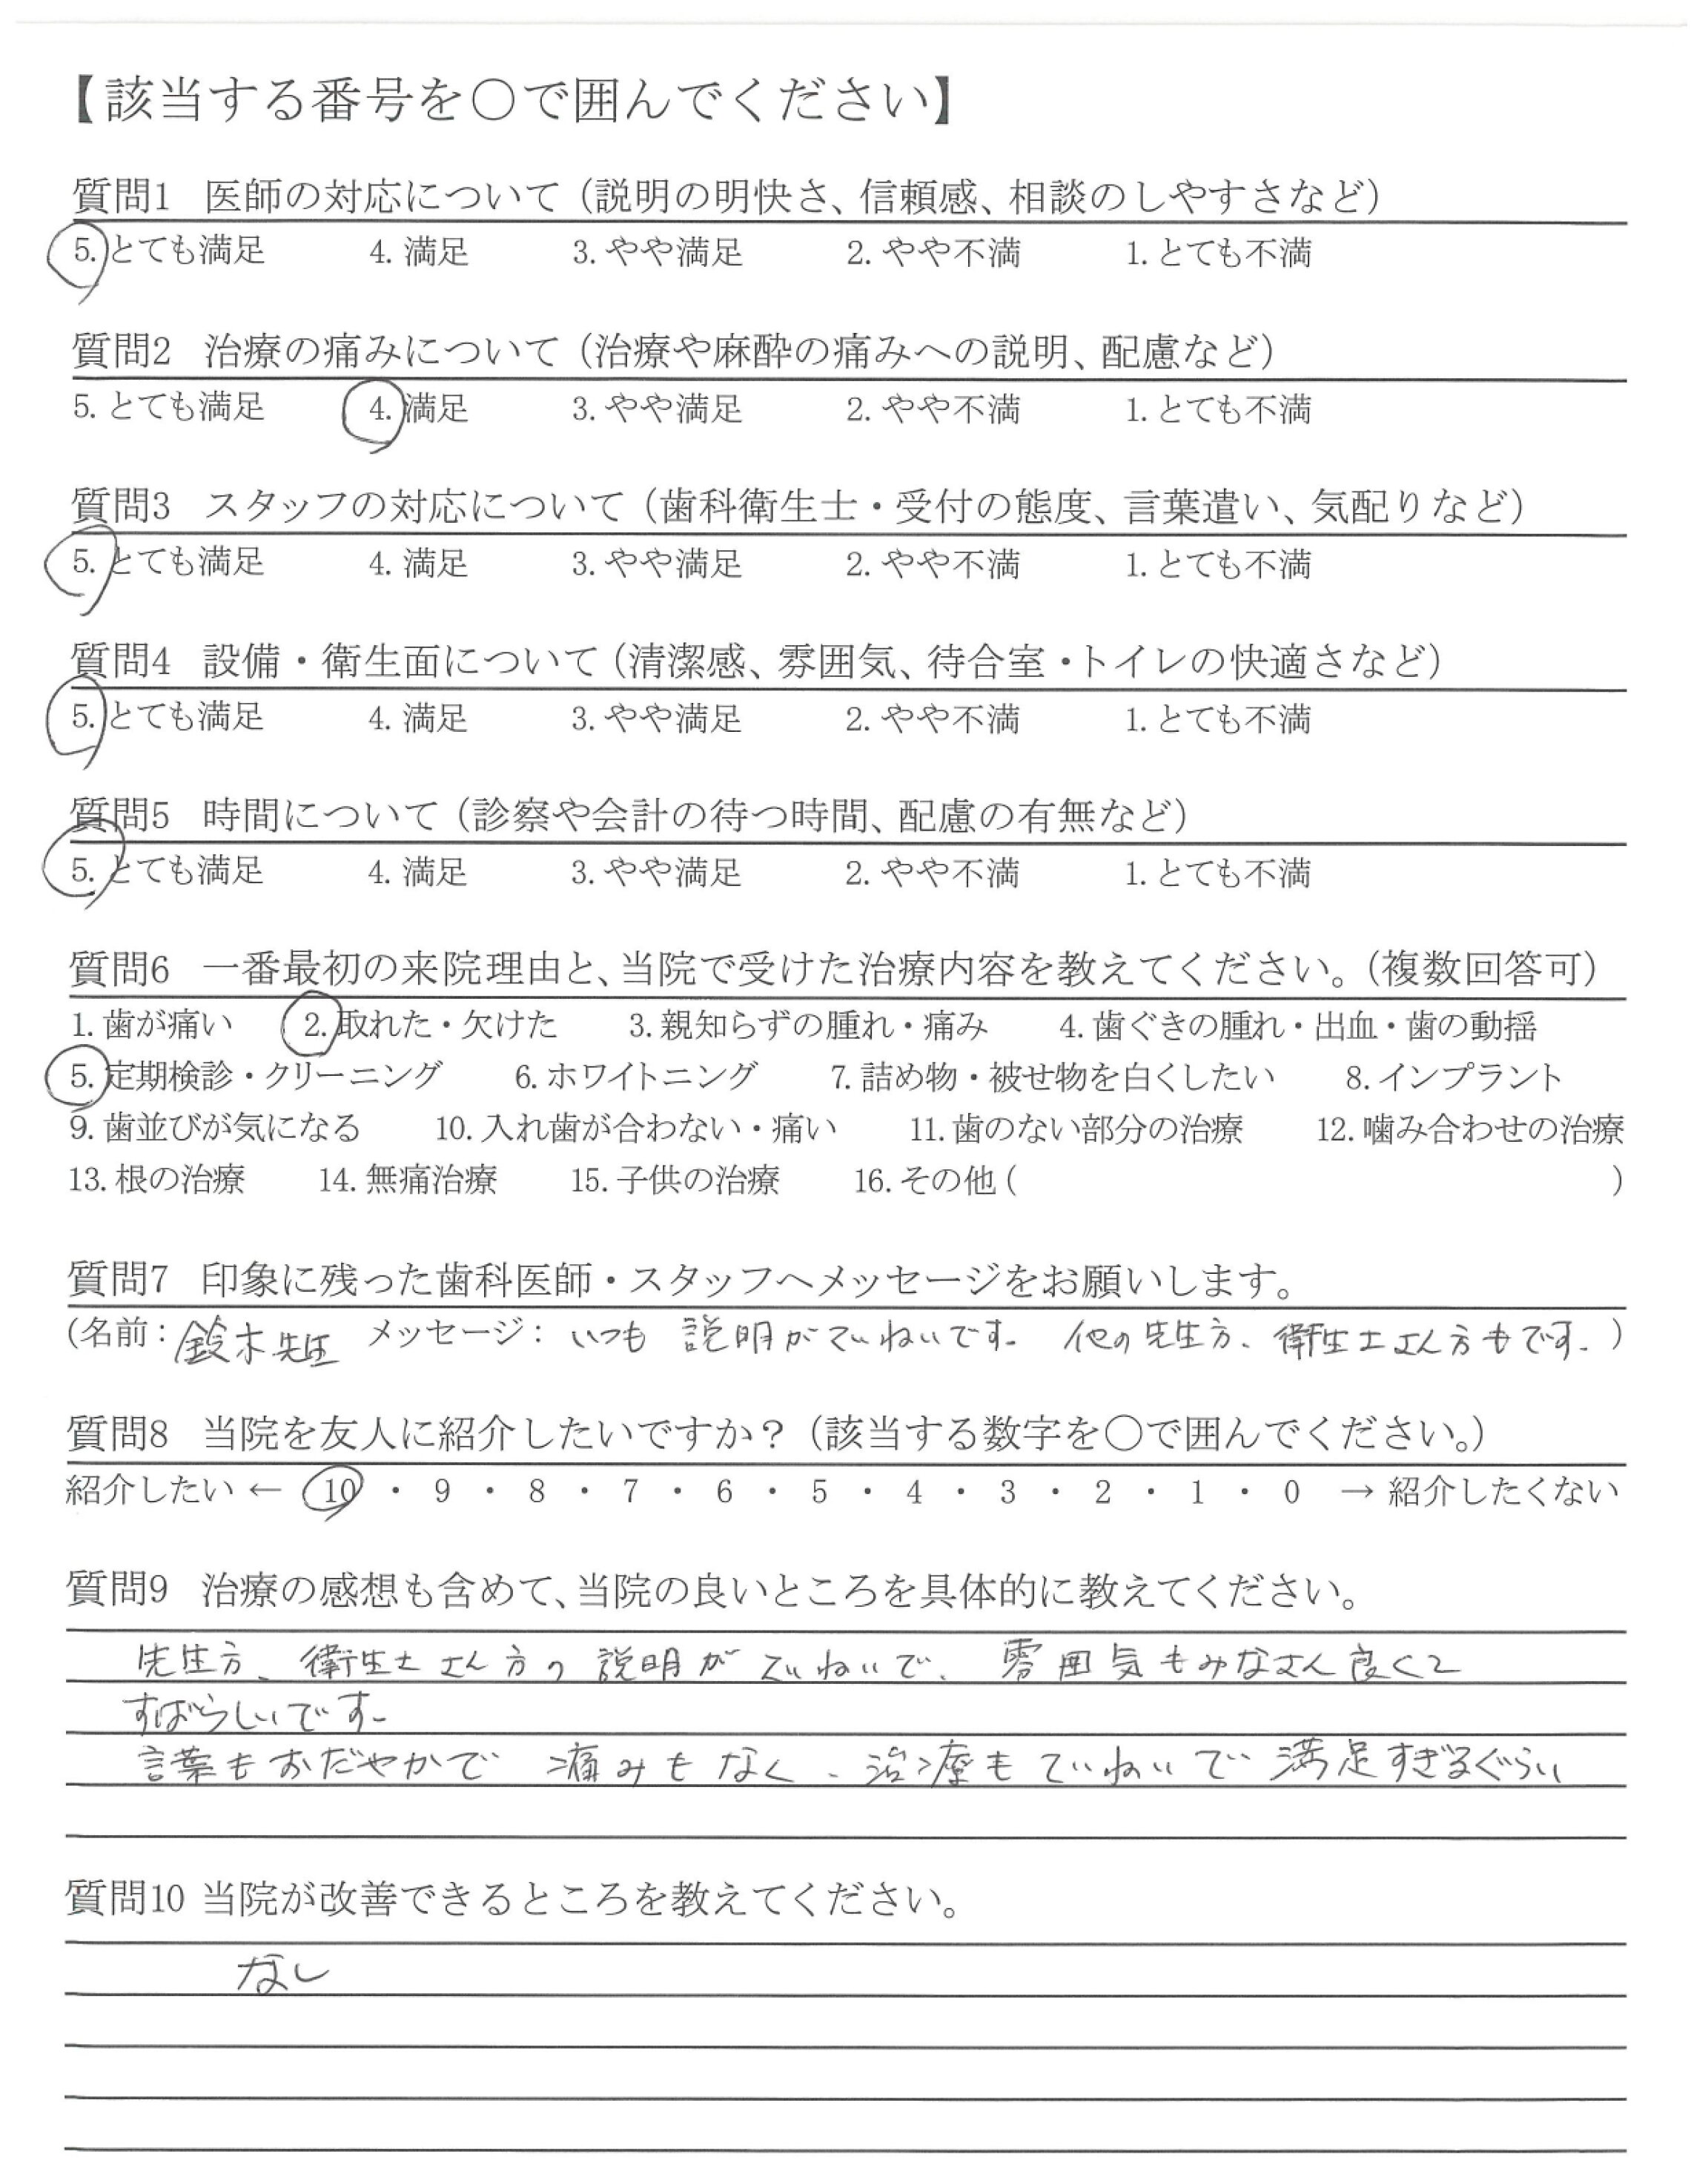 【該当する番号を〇で囲んでください】
質問1 医師の対応について（説明の明快さ、信頼感、相談のしやすさなど）
5. とても満足 4. 満足 3. やや満足 2. やや不満 1. とても不満
質問2 治療の痛みについて（治療や麻酔の痛みへの説明、配慮など）
5. とても満足 4. 満足 3. やや満足 2. やや不満 1. とても不満
質問3 スタッフの対応について（歯科衛生士・受付の態度、言葉遣い、気配りなど）
5. とても満足 4. 満足 3. やや満足 2. やや不満 1. とても不満
質問4 設備・衛生面について（清潔感、雰囲気、待合室・トイレの快適さなど）
5. とても満足 4. 満足 3. やや満足 2. やや不満 1. とても不満
質問5 時間について（診察や会計の待つ時間、配慮の有無など）
5. とても満足 4. 満足 3. やや満足 2. やや不満 1. とても不満
質問6 一番最初の来院理由と、当院で受けた治療内容を教えてください。（複数回答可）
1. 歯が痛い 2. 取れた・欠けた 3. 親知らずの腫れ・痛み 4. 歯ぐきの腫れ・出血・歯の動揺
5. 定期検診・クリーニング 6. ホワイトニング 7. 詰め物・被せ物を白くしたい 8. インプラント
9. 歯並びが気になる 10. 入れ歯が合わない・痛い 11. 歯のない部分の治療 12. 噛み合わせの治療
13. 根の治療 14. 無痛治療 15. 子供の治療 16. その他 ( )
質問7 印象に残った歯科医師・スタッフへメッセージをお願いします。
（名前：鈴木先生 メッセージ：いつも 説明がていねいです。 他の先生方、衛生士さん方もです。）
質問8 当院を友人に紹介したいですか？（該当する数字を〇で囲んでください。）
紹介したい ← 10 ・ 9 ・ 8 ・ 7 ・ 6 ・ 5 ・ 4 ・ 3 ・ 2 ・ 1 ・ 0 → 紹介したくない
質問9 治療の感想も含めて、当院の良いところを具体的に教えてください。
先生方、衛生士さん方の説明がていねいで、雰囲気もみなさん良くて
すばらしいです。
言葉もおだやかで 痛みもなく、治療もていねいで 満足すぎるぐらい
質問10 当院が改善できるところを教えてください。
なし